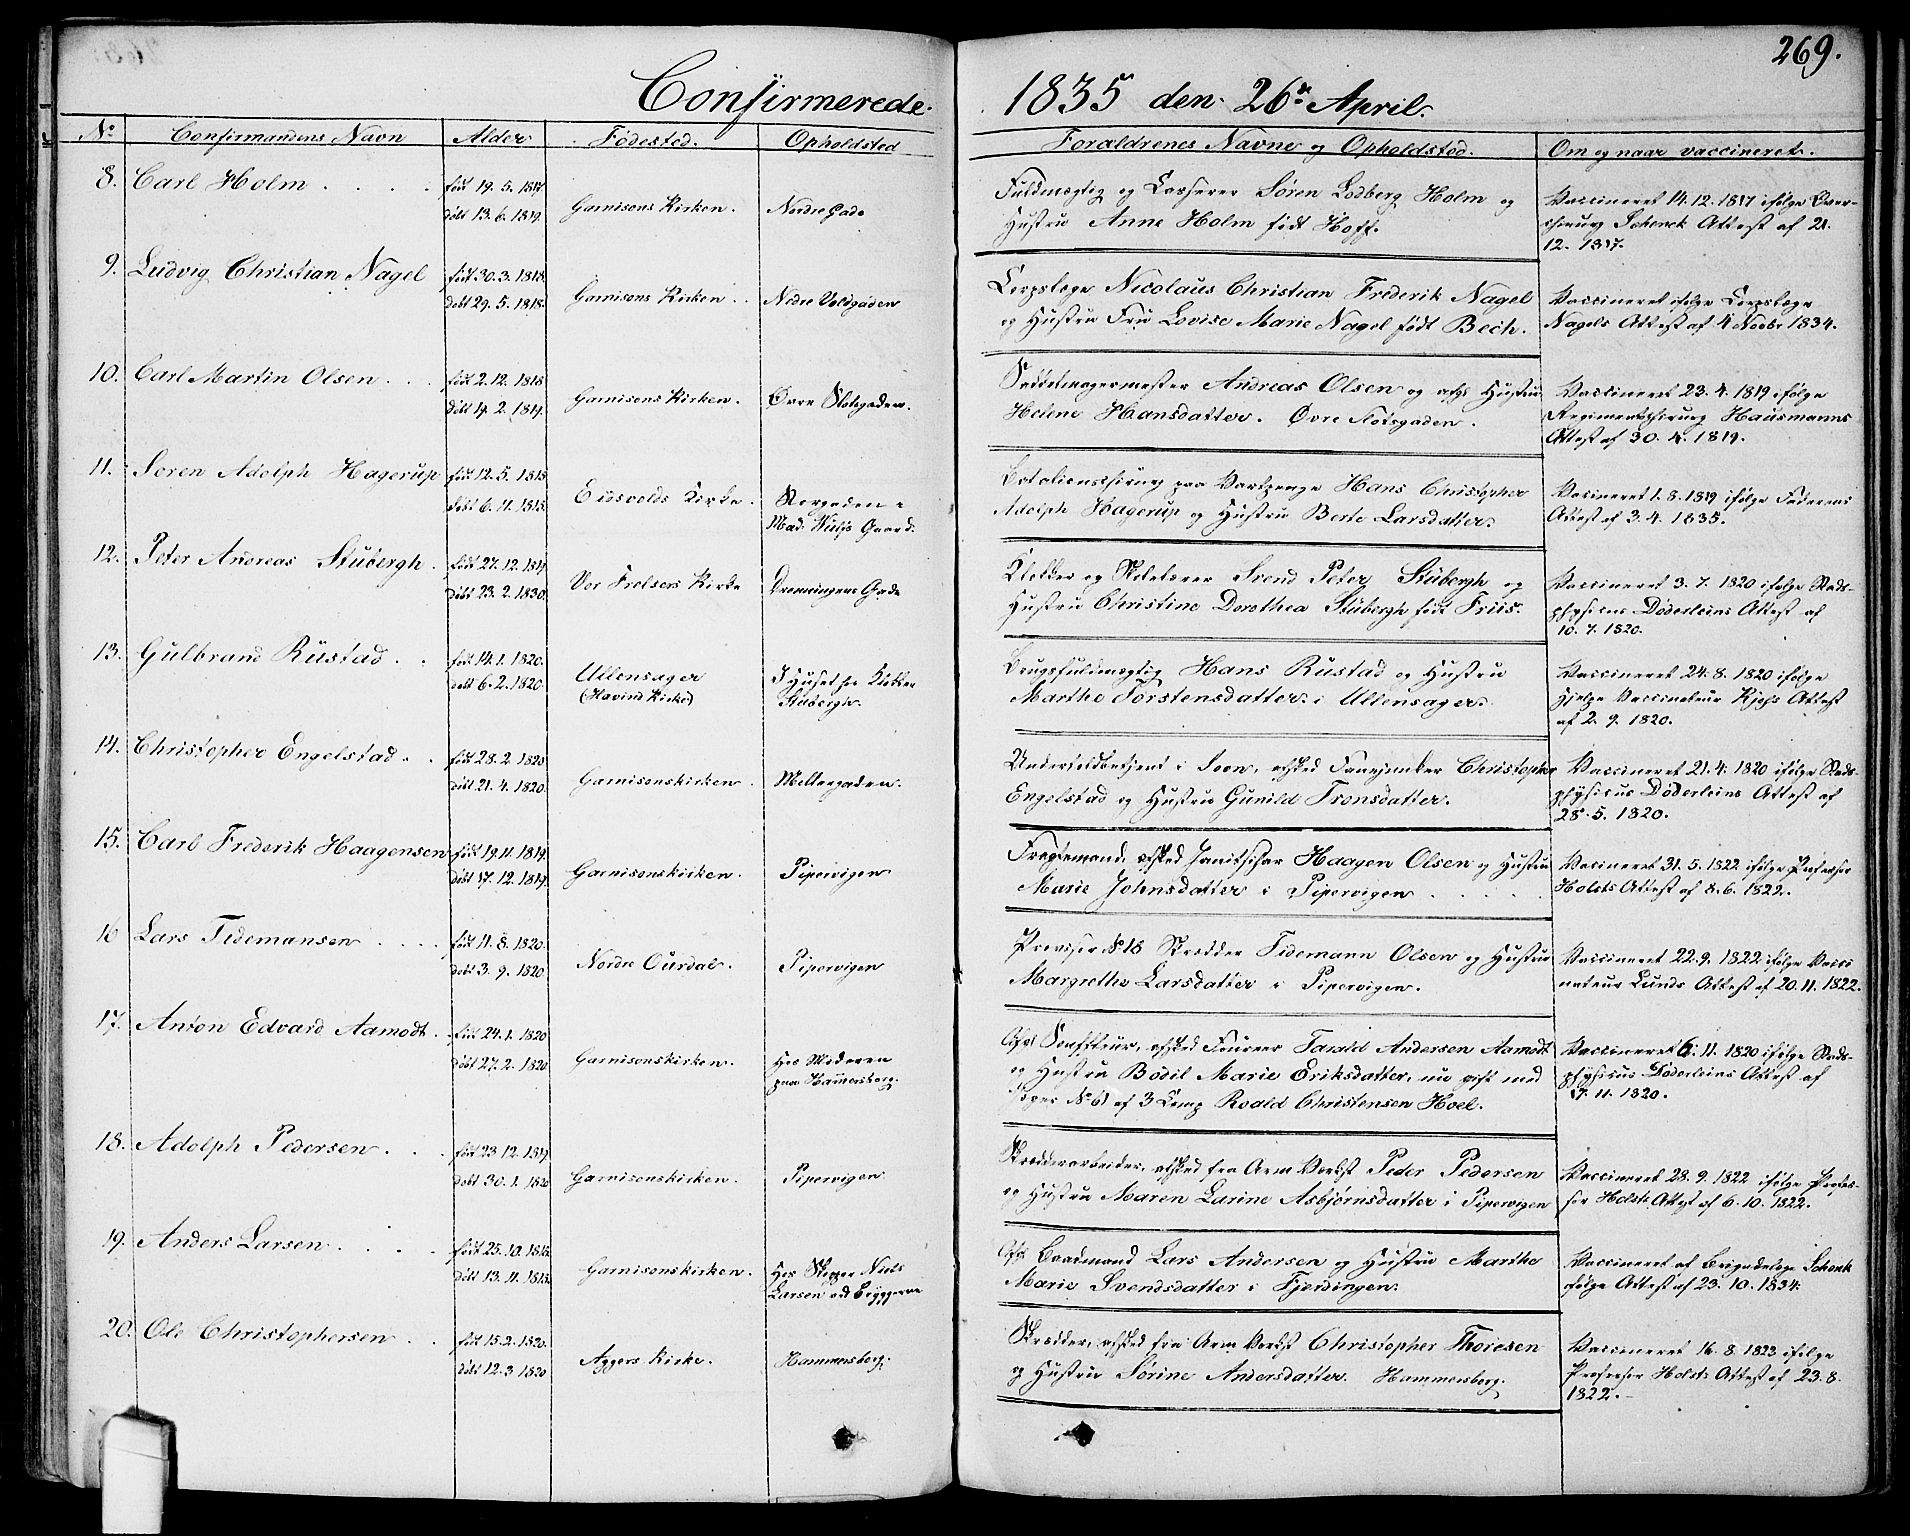 269.
Confirmerede 1835 den 26de April.
No Confirmandens Navn Alder Fødested. Opholdsted Forældrenes Navne og Opholdsted. Om og naar vaccineret.
8. Carl Holm født 19. 5. 1817
døbt 13. 6. 1819. Garnisons Kirken. Nordre Gade
Fuldmægtig og Casserer Sören Lodberg Holm og
Hustru Anne Holm født Hoff.
Vaccineret 14. 12. 1817 ifølge Over-
chirurg Schenck Attest af 21.
12. 1817.
9. Ludvig Christian Nagel født 30. 3. 1818.
døbt 29. 5. 1818. Garnisons Kirken. Nedre Voldgaden
Corpslæge Nicolaus Christian Frederik Nagel
og Hustru Fru Lovise Marie Nagel født Bech.
Vaccineret ifølge Corpslæge
Nagels Attest af 4 Novbr 1834.
10. Carl Martin Olsen født 2. 12. 1818
døbt 14. 2. 1819. Garnisons Kirken. Øvre Slotsgaden.
Sadelmagermester Andreas Olsen og afg. Hustru
Helene Hansdatter. Øvre Slotsgaden.
Vaccineret 23. 4. 1819 ifølge
Regimentschirurg Hausmanns
Attest af 30. 4. 1819.
11. Soren Adolph Hagerup født 12. 5. 1818
døbt 6. 11. 1818. Eidsvolds Kirke. Storgaden i
Mad. Wulfs Gaard.
Batalionschirurg paa Vartpenge Hans Christopher
Adolph Hagerup og Hustru Berte Larsdatter.
Vacineret 1. 8. 1819 ifølge Faderens
Attest af 3. 4. 1835.
12. Peter Andreas Stübergh. født 27. 12. 1819
døbt 23. 2. 1830. Vor Frelsers Kirke Dronningens Gade
Klokker og Skolelærer Svend Peter Stübergh og
Hustru Christine Dorothea Stübergh født Friis.
Vaccineret 3. 7. 1820 ifølge Stads-
physicus Døderleins Attest af
10. 7. 1820.
13. Gulbrand Rüstad født 14. 1. 1820.
døbt 6. 2. 1820. Ullensager
(Hovind Kirke) I Huset hos Klokker
Stübergh.
Brugsfuldmægtig Hans Rüstad og Hustru
Marthe Torstensdatter. i Ullensager.
Vaccineret 24. 8. 1820 ifølge
Hjelpe Vaccinateur Attest
af 2. 9. 1820.
14. Christopher Engelstad. født 28. 2. 1820
døbt 21. 4. 1820. Garnisonskirken. Mellergaden.
Undertoldbetjent i Soon, afsked Fanejunker Christopher
Engelstad og Hustru Gunild Tronsdatter.
Vaccineret 21. 4. 1820 ifølge Stads-
physicus Døderleins Attest af
28. 5. 1820.
15. Carl Frederik Haagensen født 19. 11. 1819.
døbt 17. 12. 1819. Garnisonskirken. Pipervigen
Fragtemand, afsked Janitschar Haagen Olsen og Hustru
Marie Johnsdatter i Pipervigen
Vaccineret 31. 5. 1822 ifølge Professor
Holsts Attest af 8. 6. 1822.
16 Lars Tidemansen født 11. 8. 1820.
døbt 3. 9. 1820 Nordre Ourdal. Pipervigen
No 18 Skredder Tidemann Olsen og Hustru
Margrethe Larsdatter i Pipervigen.
Vaccineret 22. 9. 1822 ifølge Vacci
nateur Lunds Attest af 20. 11. 1822.
17. Anton Edvard Aamodt. født 24. 1. 1820
døbt 27. 2. 1820 Garnisonskirken. Hos Moderen
paa Hammersborg.
Afg. afsked Fourer Tarald Andersen Aamodt
og Hustru Bodil Marie Eriksdatter, nu gift med
No 61 af 3 Comp Roald Christensen Hoel.
Vaccineret 6. 11. 1820 ifølge Stads-
physicus Døderleins Attest af
17. 11. 1820.
18. Adolph Pedersen født 23 12. 1819
døbt 30. 1. 1820 Garnisonskirken. Pipervigen
Skredderarbeider, afsked fra Arm. Verkst Peder Pedersen
og Hustru Maren Larine Asbjørnsdatter i Pipervigen
Vaccineret 28. 9. 1822 ifølge Profes-
sor Holsts Attest af 6. 10. 1822.
19. Anders Larsen født 25. 10. 1818.
døbt 13. 11. 1818. Garnisonskirken. Hos Niels
Larsen ved Bryggerne
Afg. Baadmand Lars Andersen og Hustru Marthe
Marie Svendsdatter i Fjerdingen.
Vaccineret af Brigadelæge Schenk
ifølge Attest af 23. 10. 1834.
20. Ole Christophersen født 15. 2. 1820.
døbt 12. 3 1820 Aggers Kirke. Hammersborg.
Skredder, afsked fra Arm. Verkst Christopher Thoresen
og Hustru Sørine Andersdatter. Hammersborg.
Vaccineret 16. 8. 1823 ifølge
Professor Holsts Attest af 23. 8.
1822.